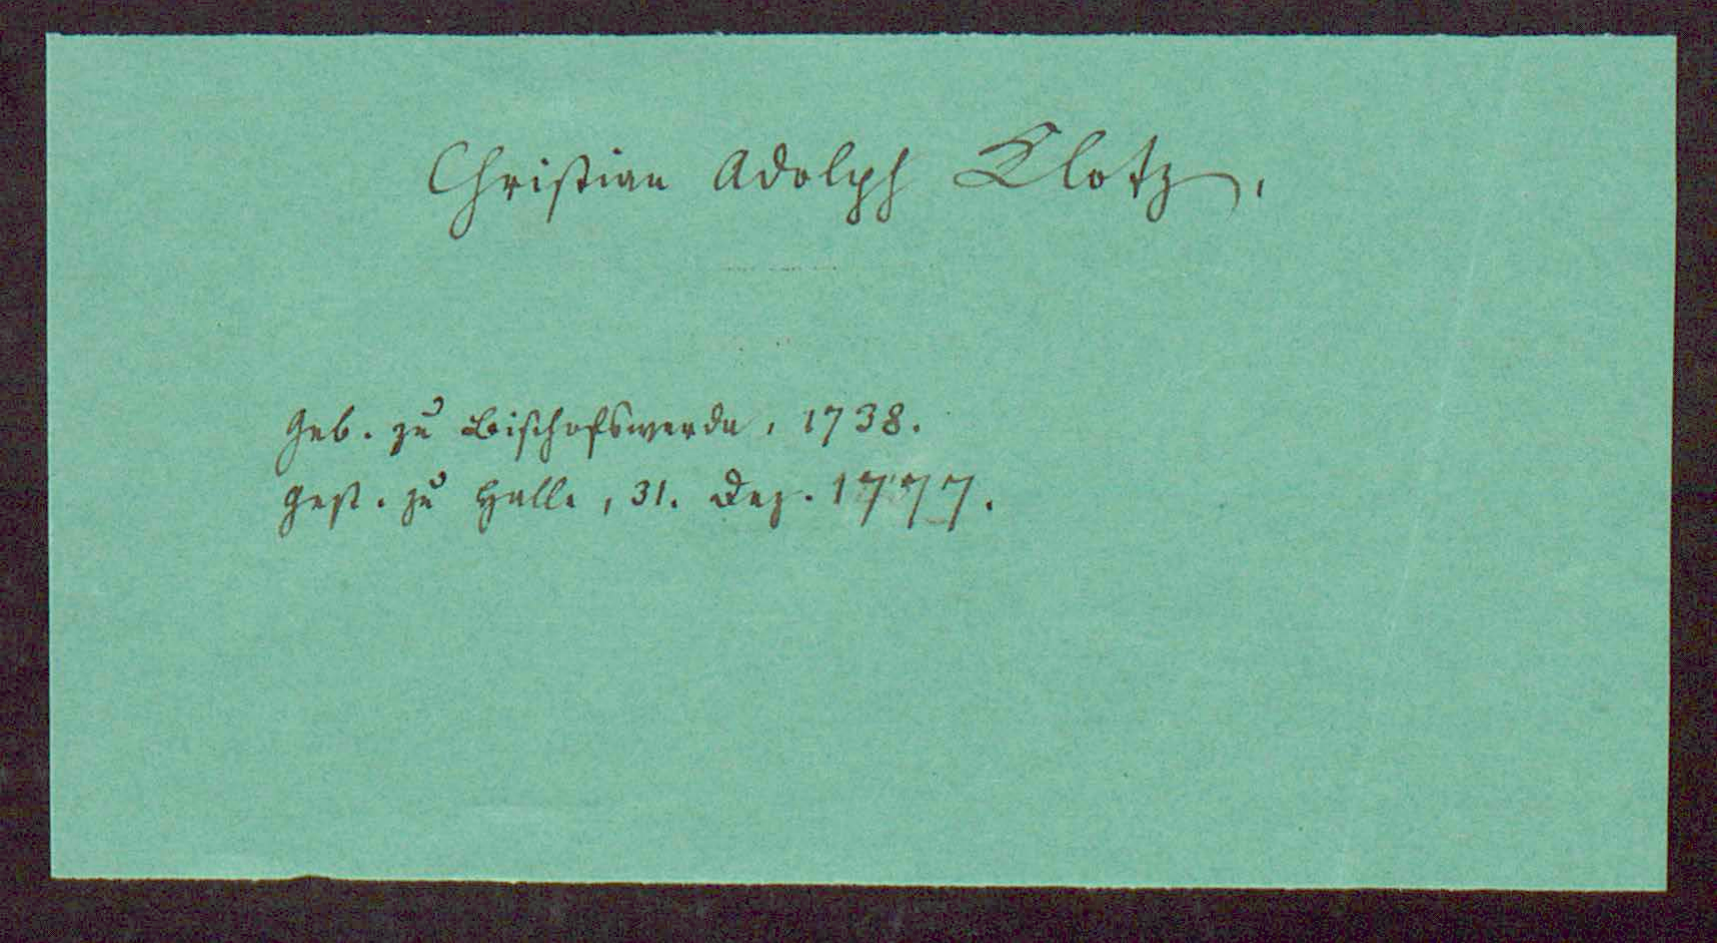 Christian Adolph Klotz,
Geb. zu Bischofswerda, 1738.
Gest. zu Halle, 31. Dez. 1777.